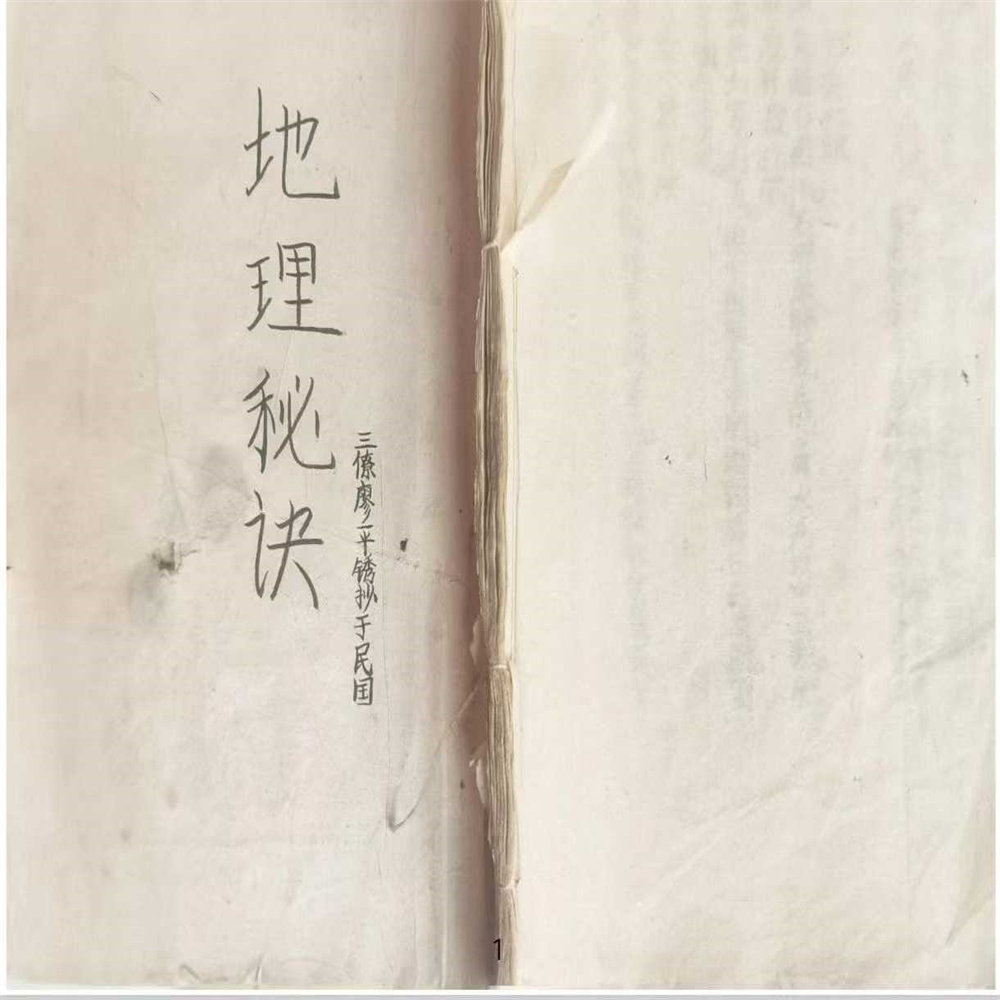 地理秘诀
三僚廖平锈抄于民国
1